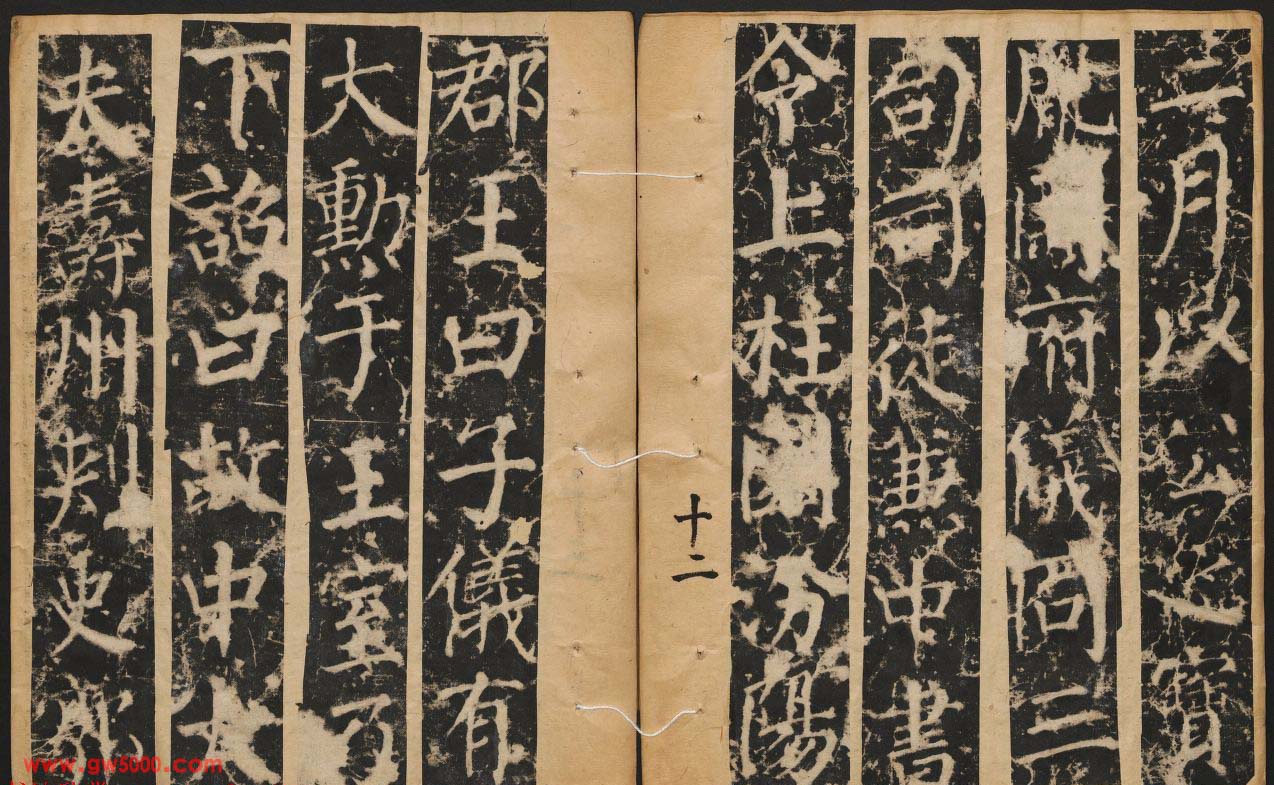 二月以公之寶
胤開府儀同三
司司徒兼中書
令上柱國汾陽
十二
郡王曰子儀有
大勳于王室乃
下詔曰故中大
夫壽州刺史郭
www.gw5000.com